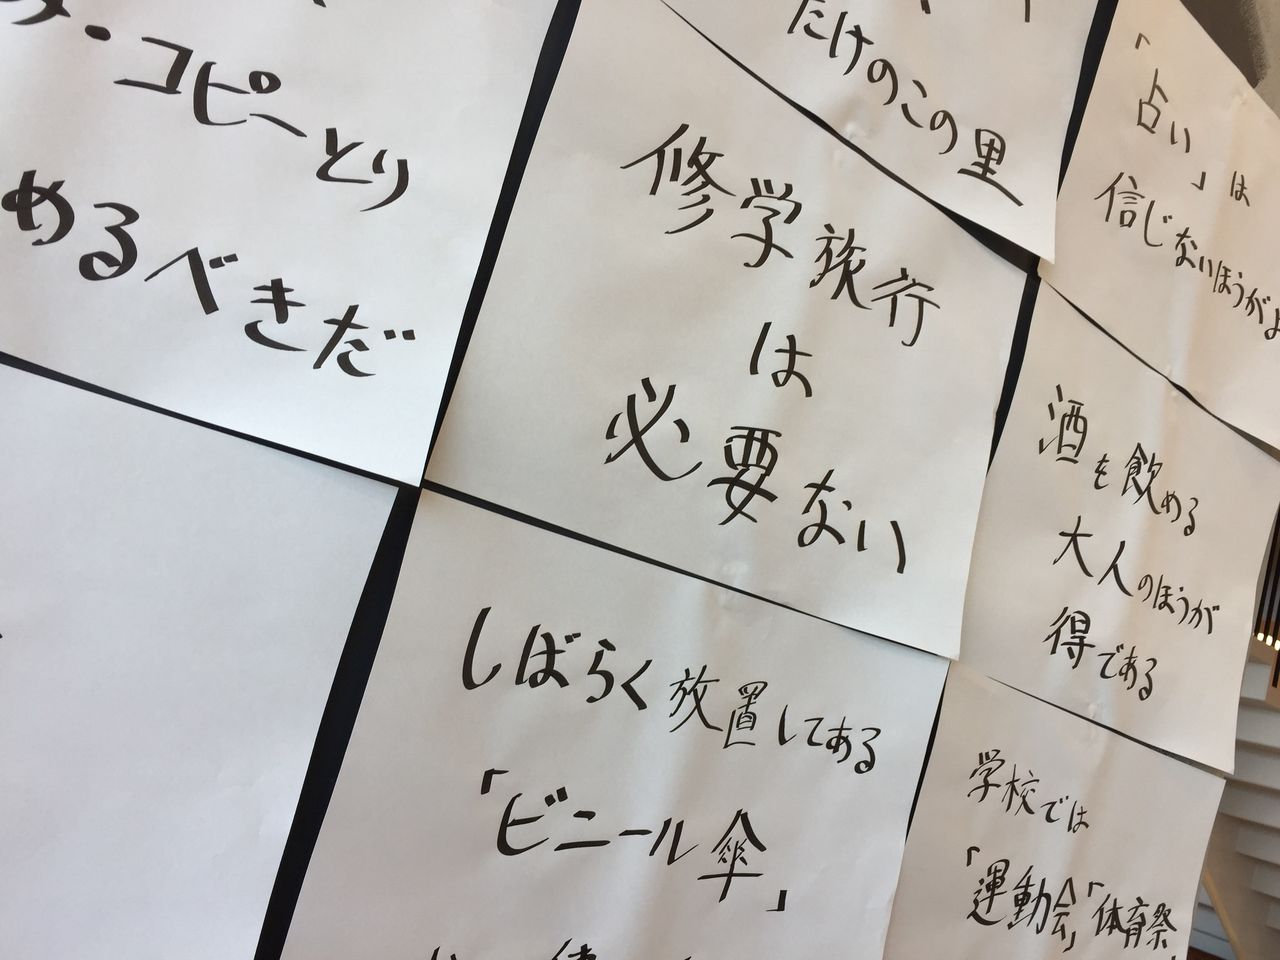 ・コピーとり
めるべきだ
たけのこの里
「占い」は
信じないほうがよ
修学旅行
は
必要ない
酒を飲める
大人のほうが
得である
しばらく放置してある
「ビニール傘」
学校では
「運動会」「体育祭